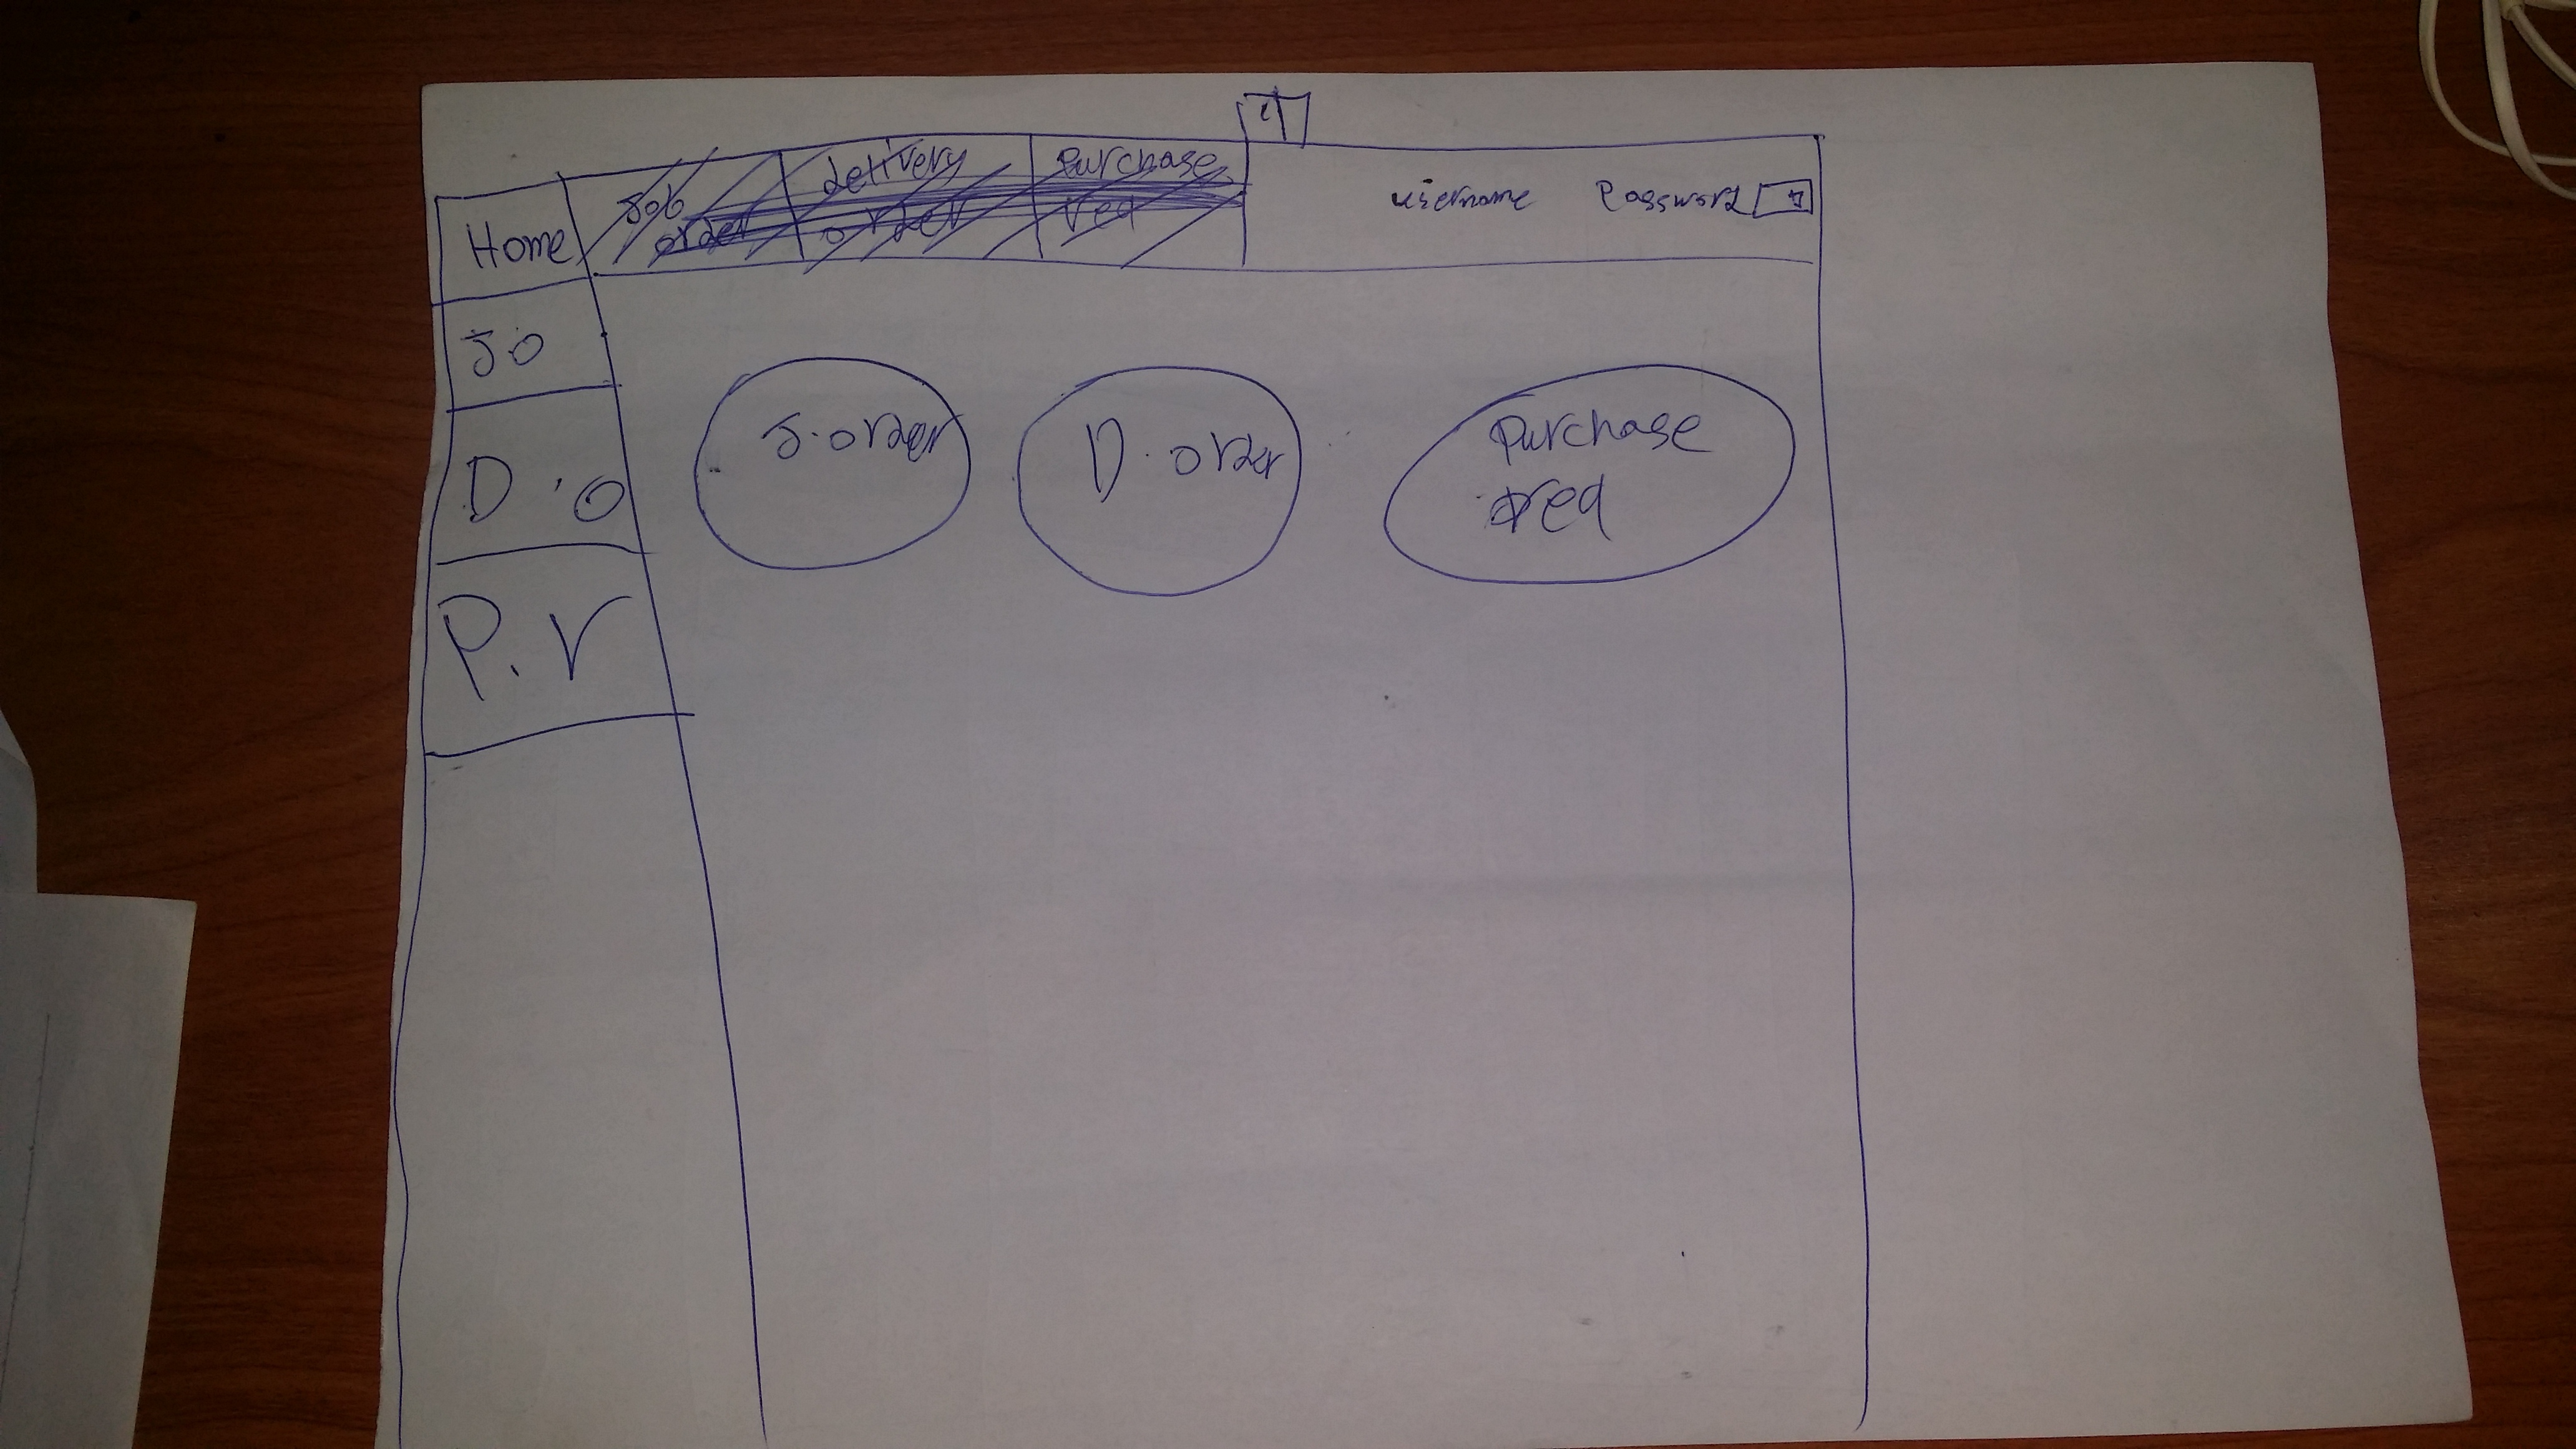 Home
Job
order
delivery
order
Purchase
req
username Password
J O
D . O
P. r
J. order
D. order
Purchase
req